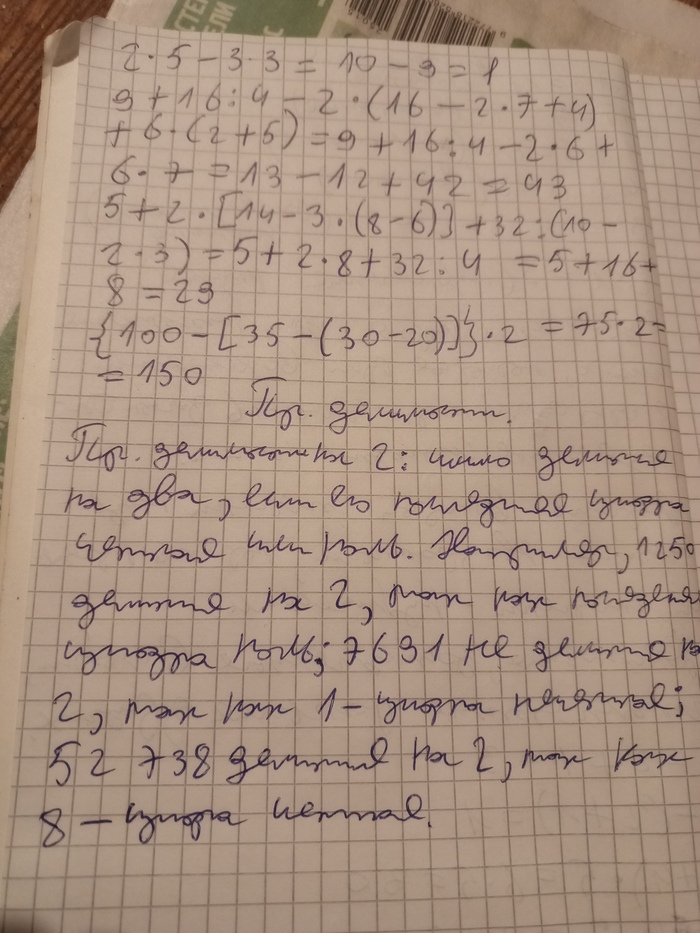 СТЕ
ТЕЛИ
2·5-3·3=10-9=1
9+16:4-2·(16-2·7+4)
+6·(2+5)=9+16:4-2·6+
6·7=13-12+42=43
5+2·[14-3·(8-6)]+32:(10-
2·3)=5+2·8+32:4 =5+16+
8=29
{100-[35-(30-20)]}·2 =75·2=
=150
Пр. делимости.
Пр. делимости на 2: число делится
на два, если его последняя цифра
четная или ноль. Например, 1250
делится на 2, так как последняя
цифра ноль; 7691 не делится на
2, так как 1-цифра нечетная;
52 738 делится на 2, так как
8 – цифра четная.